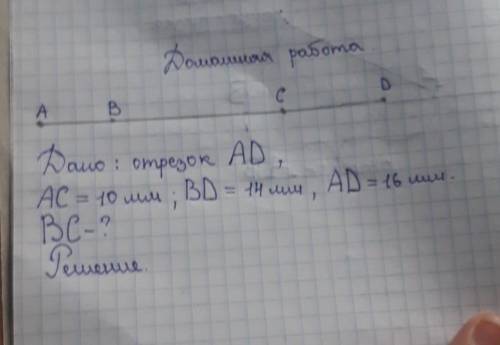 Домашная работа
A B C D
Дано: отрезок AD,
AC = 10 мм; BD = 14 мм, AD = 16 мм.
BC - ?
Решение.